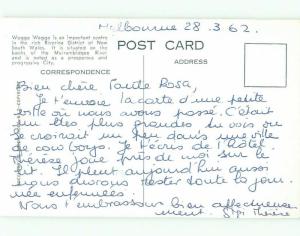 Melbourne 28.3.62.
Wagga Wagga is an important centre
in the rich Riverina District of New
South Wales. It is situated on the
banks of the Murrumbidgee River
and is noted as a prosperous and
progressive City.
POST CARD
CORRESPONDENCE
ADDRESS
Bien chère Tante Rosa,
Je t'envoie la carte d'une petite
ville où nous avons passé. C'était
un des plus grandes. Tu vois on
se croirait un peu dans une ville
de cow boys. Je t'écris de l'hôtel
Thérèse joue près de moi sur le
lit. Il pleut aujourd'hui aussi
nous devrons rester toute la jour
née enfermées.
Nous t'embrassons bien affectueuse
ment. Thérèse